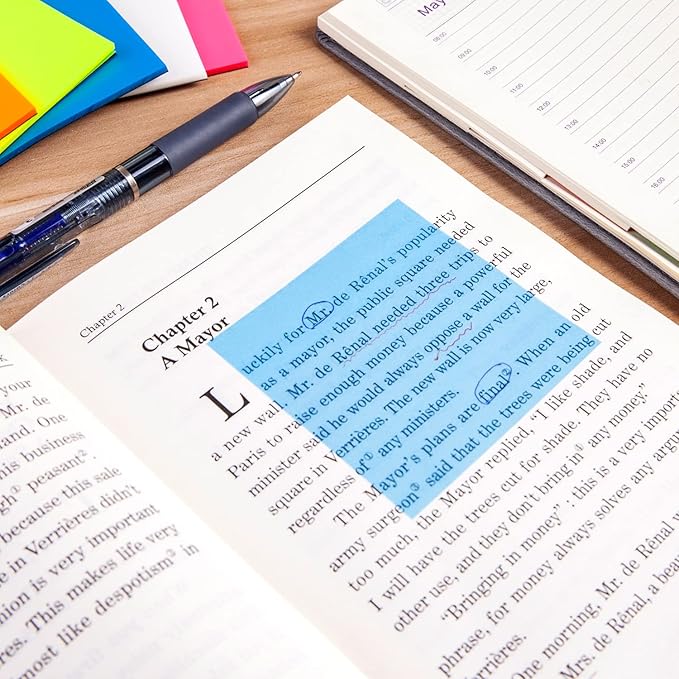 May
08:00
09:00
10:00
11:00
12:00
13:00
14:00
15:00
16:00
your
Mr. de
One
business
peasant
because this sale
in Verrières didn't
is very important
This makes life very
most like despotism in
Chapter 2
Chapter 2
A Mayor
Luckily for Mr. de Rênal's popularity
as a mayor, the public square needed
a new wall. Mr. de Rênal needed three trips to
Paris to raise enough money because a powerful
minister said he would always oppose a wall for the
square in Verrières. The new wall is now very large,
regardless of any ministers.
The Mayor's plans are final. When an old
army surgeon said that the trees were being cut
too much, the Mayor replied, "I like shade, and
I will have the trees cut for shade. They have no
other use, and they don't bring in any money."
"Bringing in money" : this is a very important
phrase, for money always solves any
One morning, Mr. de Rênal
Verrières. Mrs. de Rênal, a